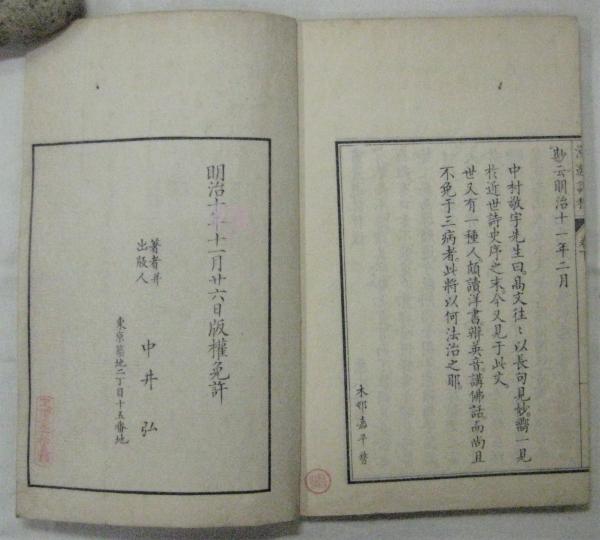 勘云明治十一年二月
中村敬宇先生曰高文往〻以長句見妙嚮一見
於近世詩史序之末今又見于此文
世又有一種人頗讀洋書辨英音講佛話而尚且
不免于三病者此將以何法治之耶
木邨嘉平
明治十年十一月廿六日版權免許
著者并
出版人
中井弘
東京築地二丁目十五番地